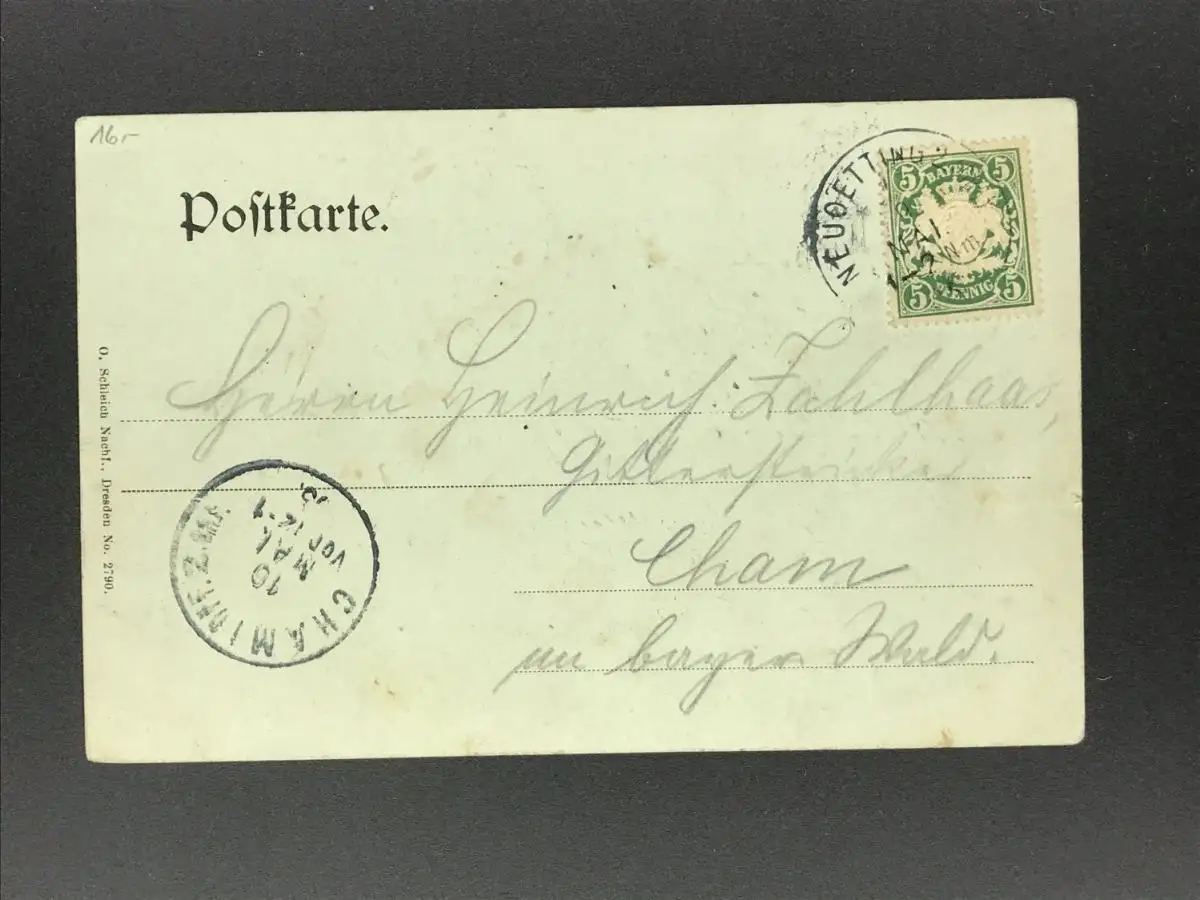 16.-
Poſtkarte.
NEUOETTING
MAI
Nm
5 BAYERN 5
5 PFENNIG 5
Herrn Heinrich Zahlhaas,
Cham
im bayer Wald.
O. Schleich Nachf., Dresden No. 2790.
CHAM
10
MAI
Vor 12-1